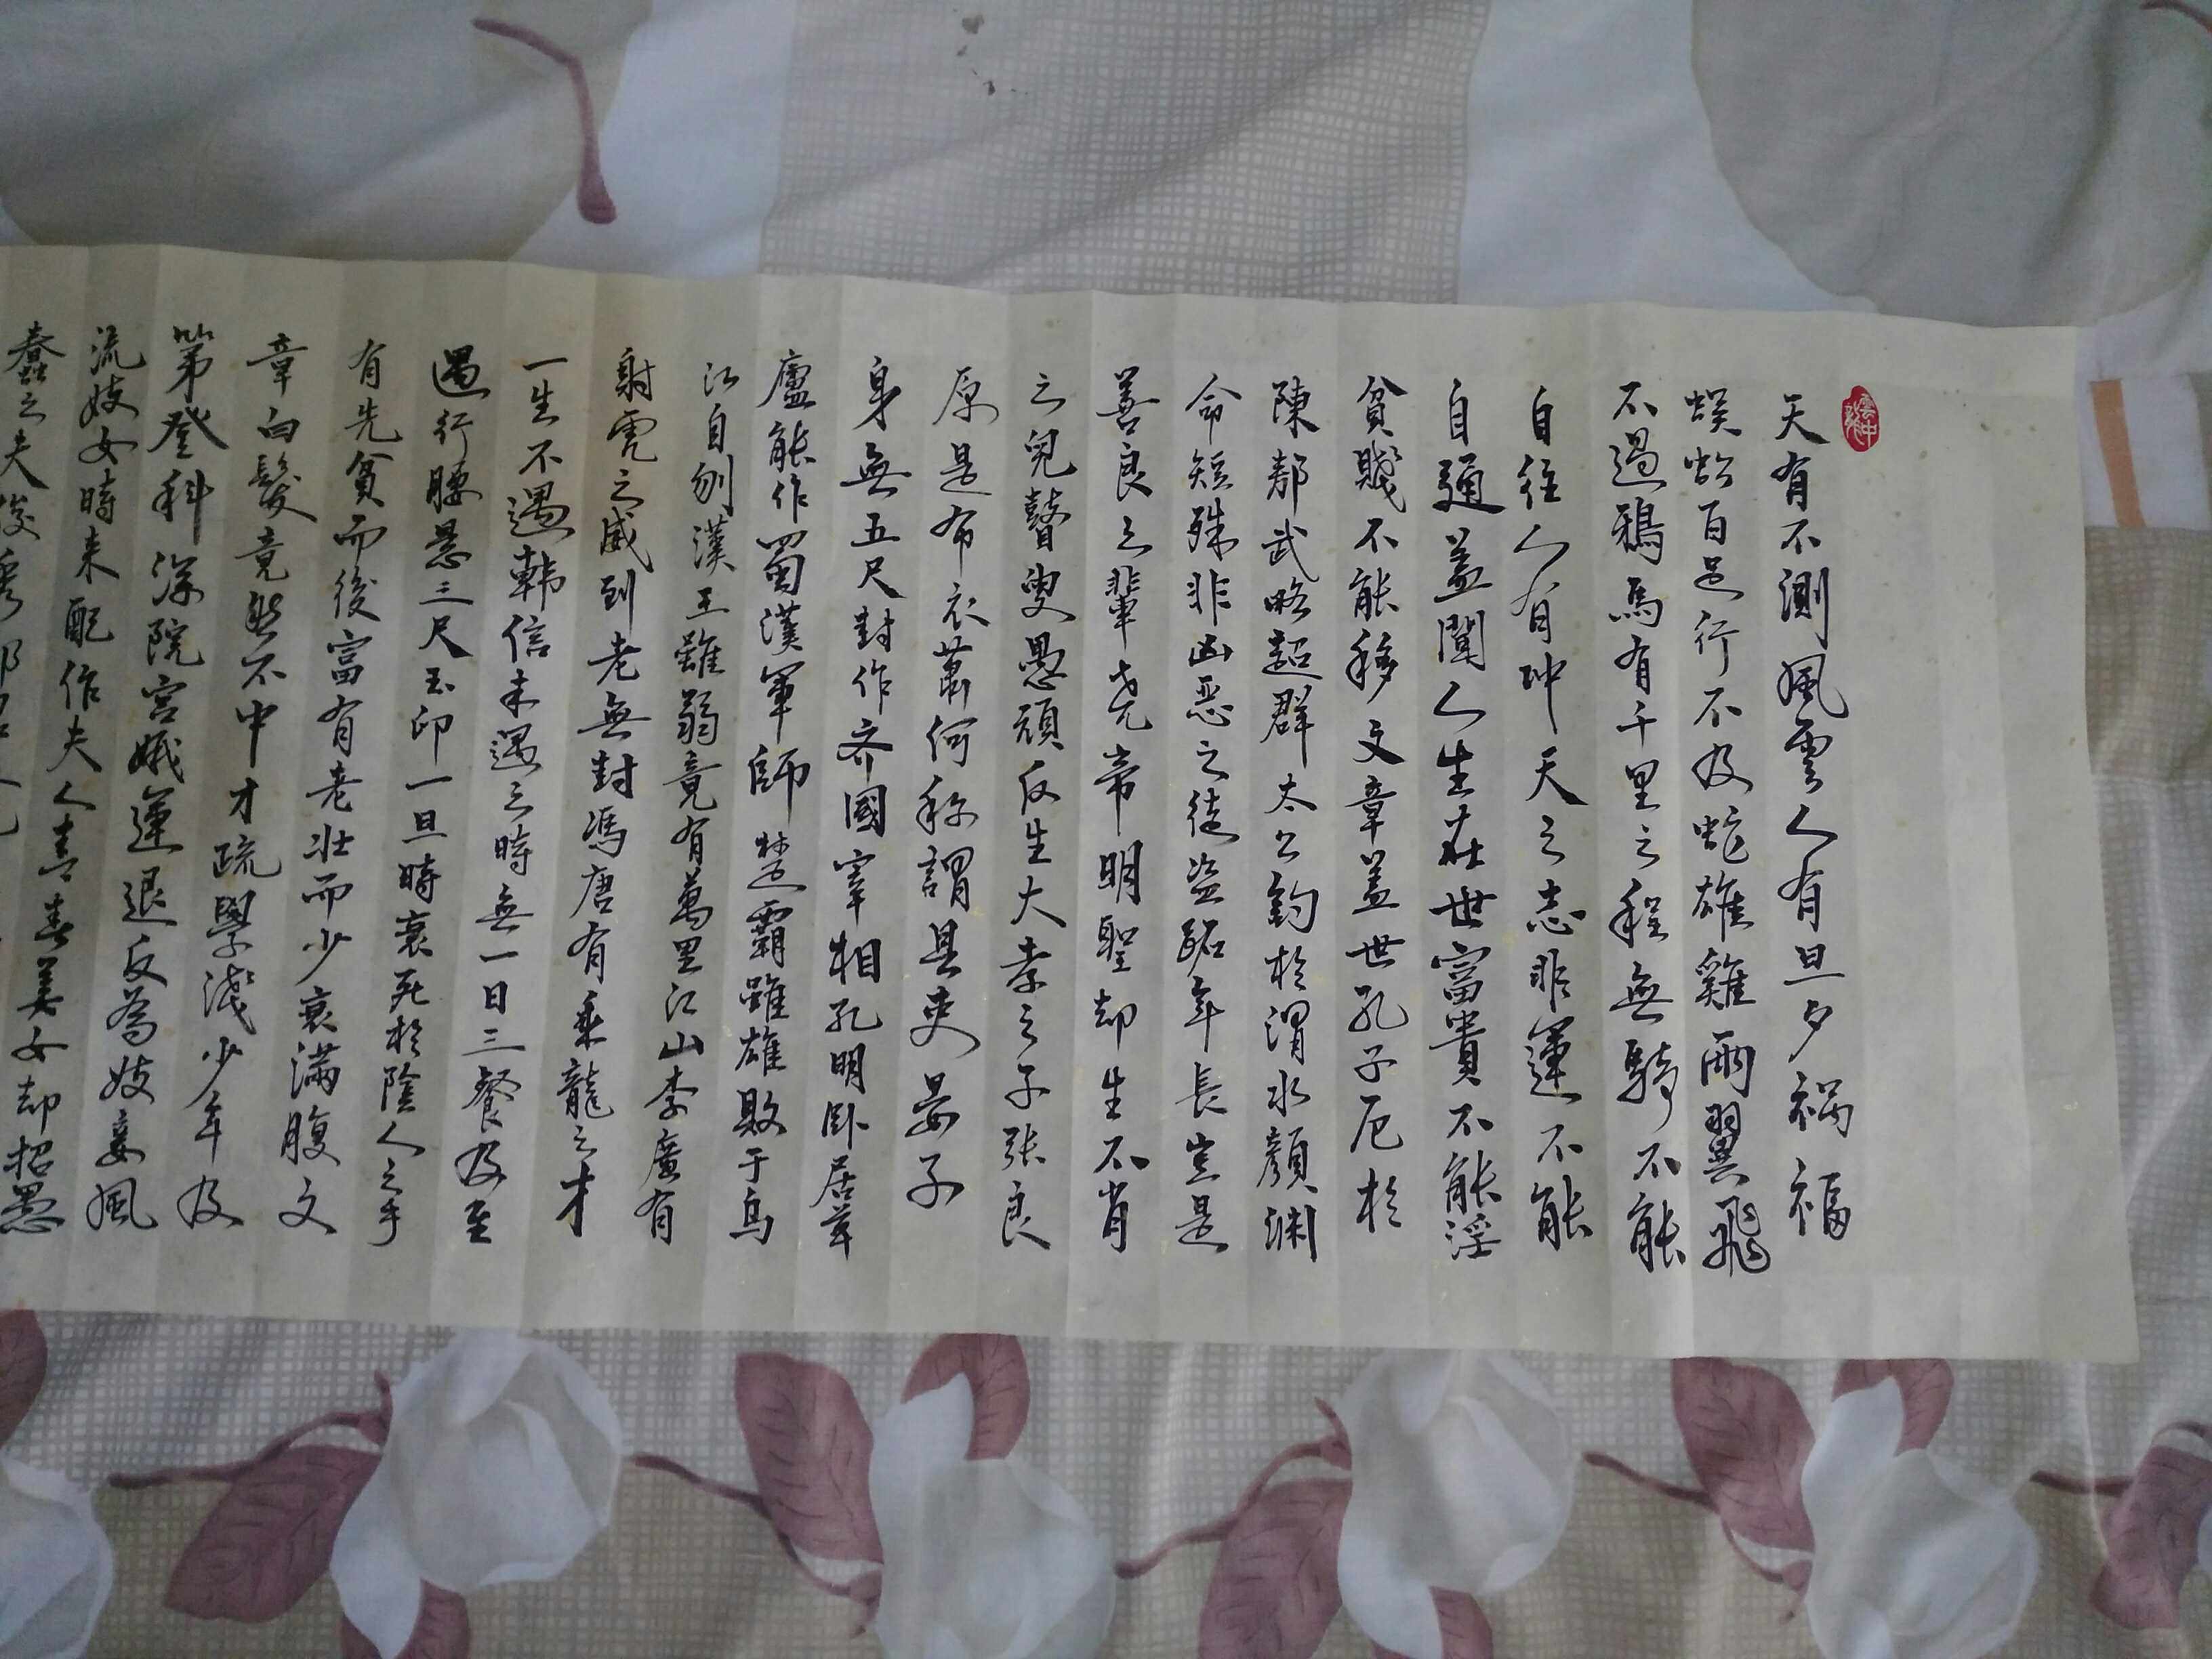 雲中龍
天有不測風雲人有旦夕禍福
蜈蚣百足行不及蛇雄雞兩翼飛
不過鴉馬有千里之程無騎不能
自往人有沖天之志非運不能
自通蓋聞人生在世富貴不能淫
貧賤不能移文章蓋世孔子厄於
陳邦武略超群太公釣於渭水顏淵
命短殊非凶惡之徒盜跖年長豈是
善良之輩堯帝明聖却生不肖
之兒瞽叟愚頑反生大孝之子張良
原是布衣蕭何称謂县吏晏子
身無五尺封作齐國宰相孔明卧居草
廬能作蜀漢軍師楚霸雖雄敗于烏
江自刎漢王雖弱竟有萬里江山李廣有
射虎之威到老無封馮唐有乘龍之才
一生不遇韓信未遇之時無一日三餐及至
遇行腰悬三尺玉印一旦時衰死於陰人之手
有先貧而後富有老壯而少衰滿腹文
章白髮竟然不中才疏學淺少年及
第登科深院宮娥運退反為妓妾風
流妓女時来配作夫人青春美女却招愚
蠢之夫俊秀郎君